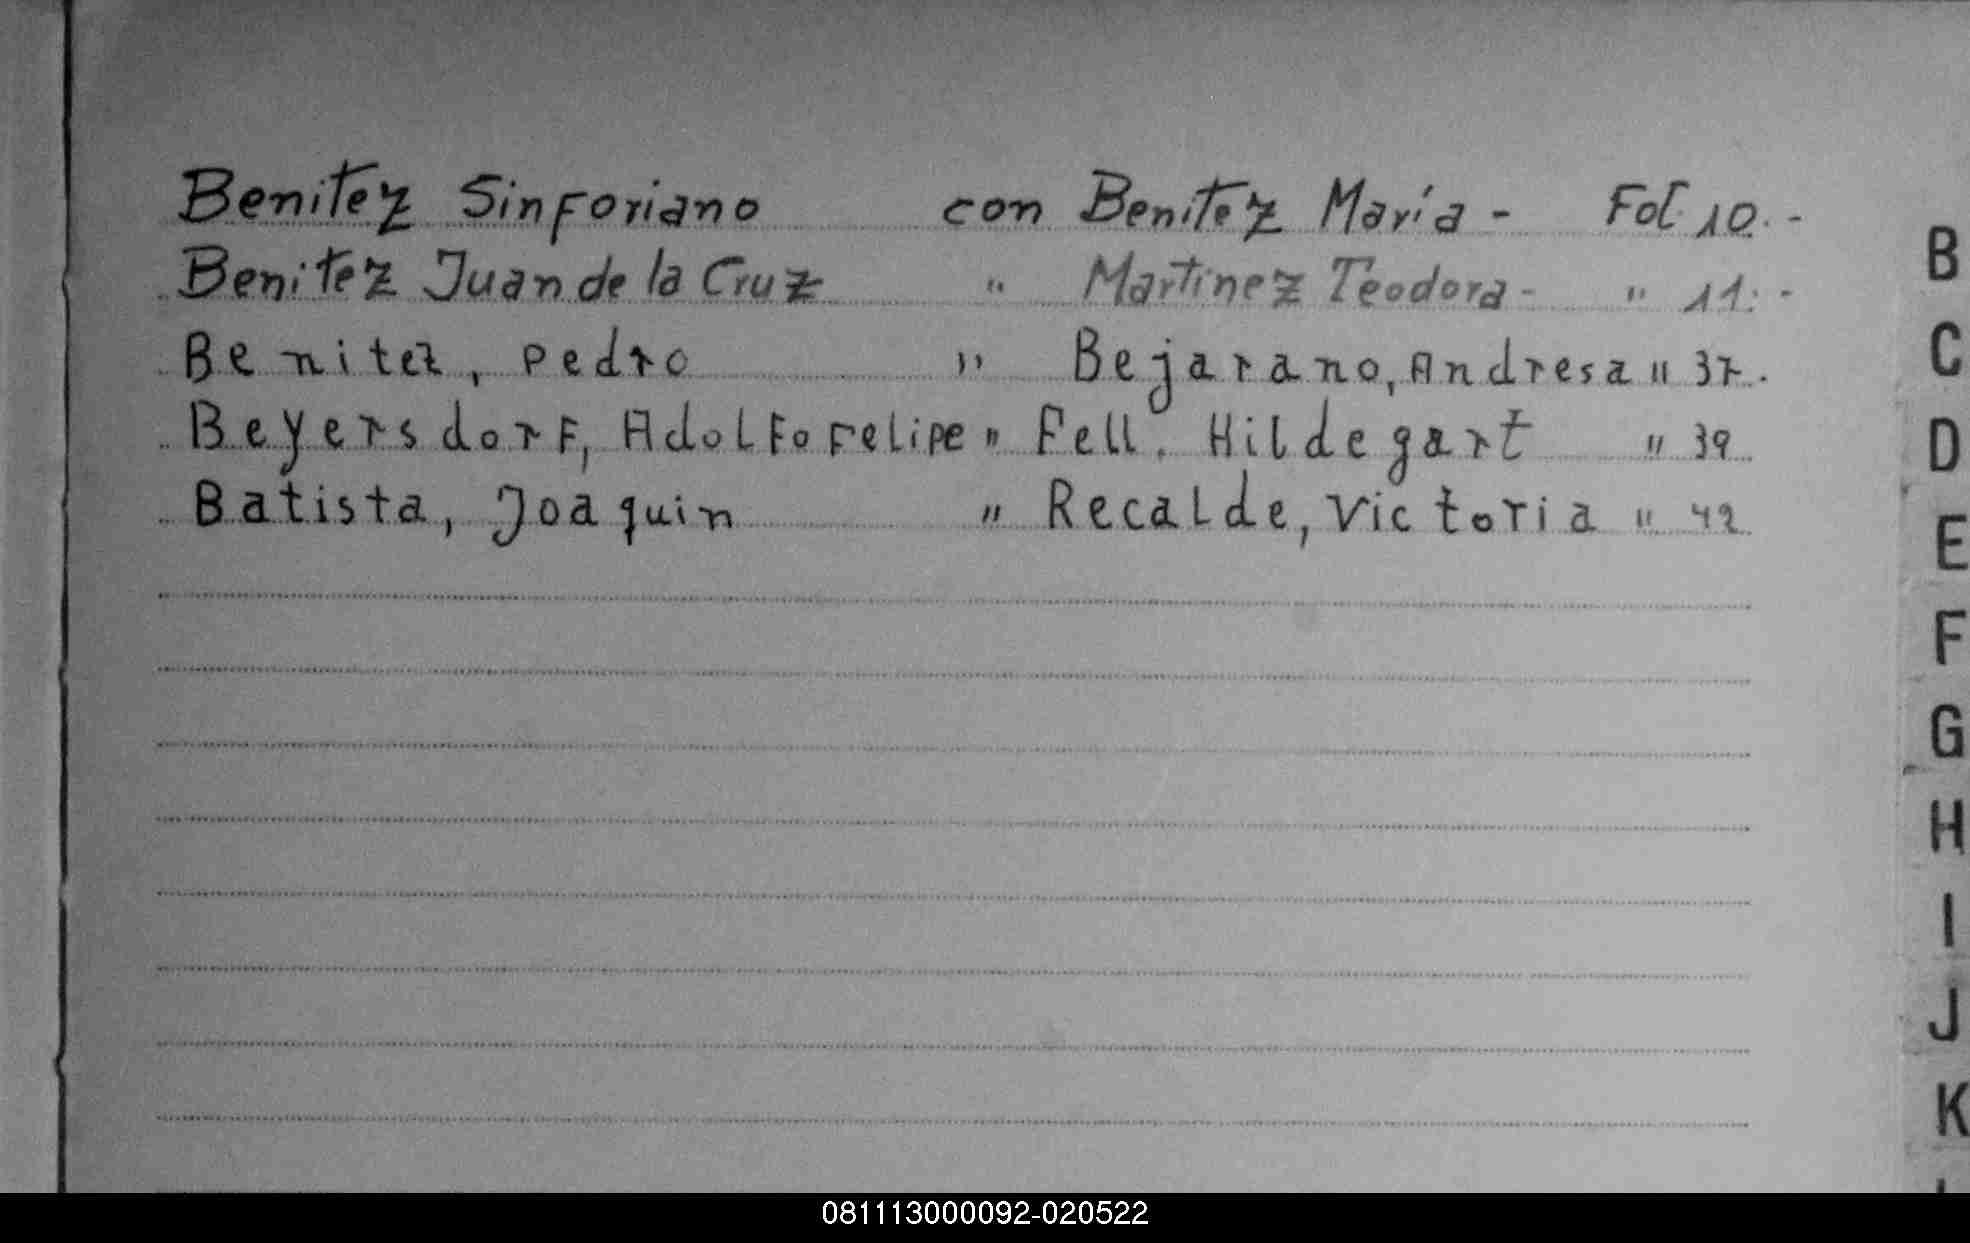 Benitez Sinforiano con Benitez María - Fol. 10. -
Benitez Juan de la Cruz " Martinez Teodora - " 11. -
Benitez, Pedro " Bejarano, Andresa " 37.
Beyersdorf, Adolfo Felipe " Fell. Hildegart " 39
Batista, Joaquin " Recalde, Victoria " 42
B
C
D
E
F
G
H
I
J
K
081113000092-020522